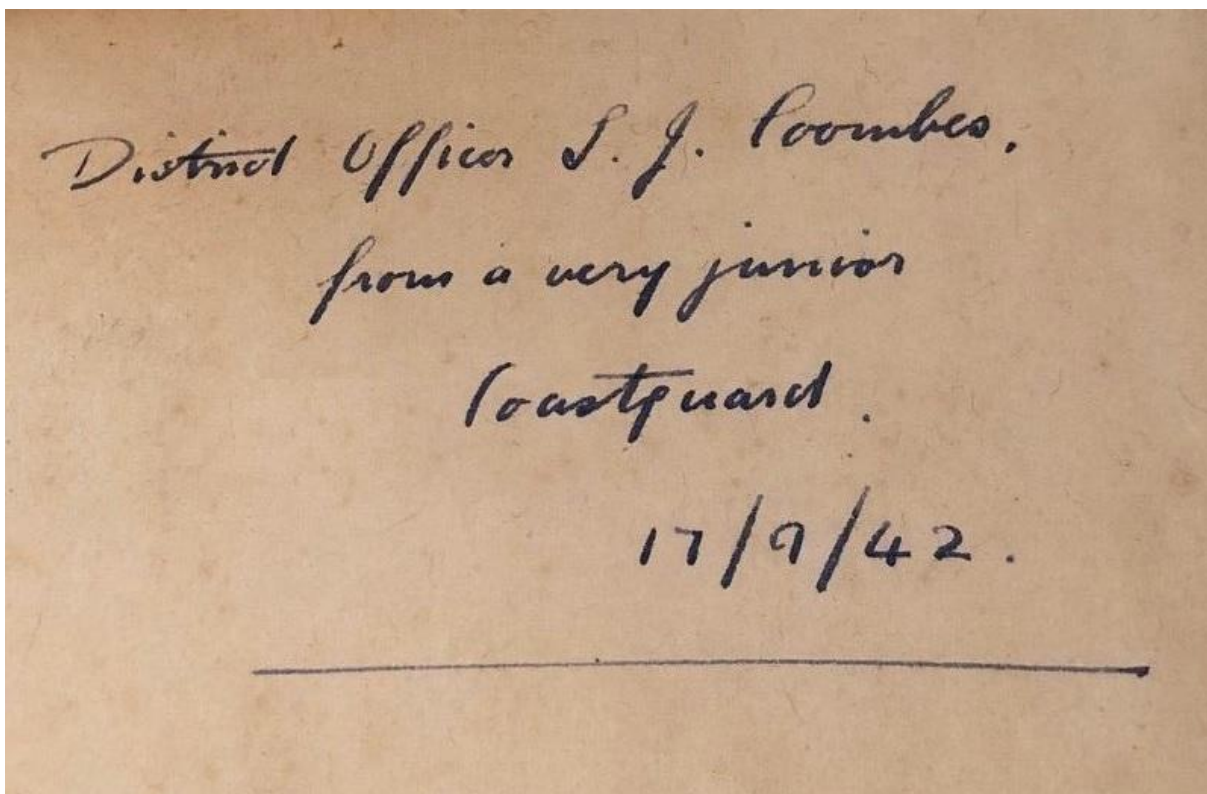 District Officer S. J. Coombes,
from a very junior
Coastguard.
17/9/42.